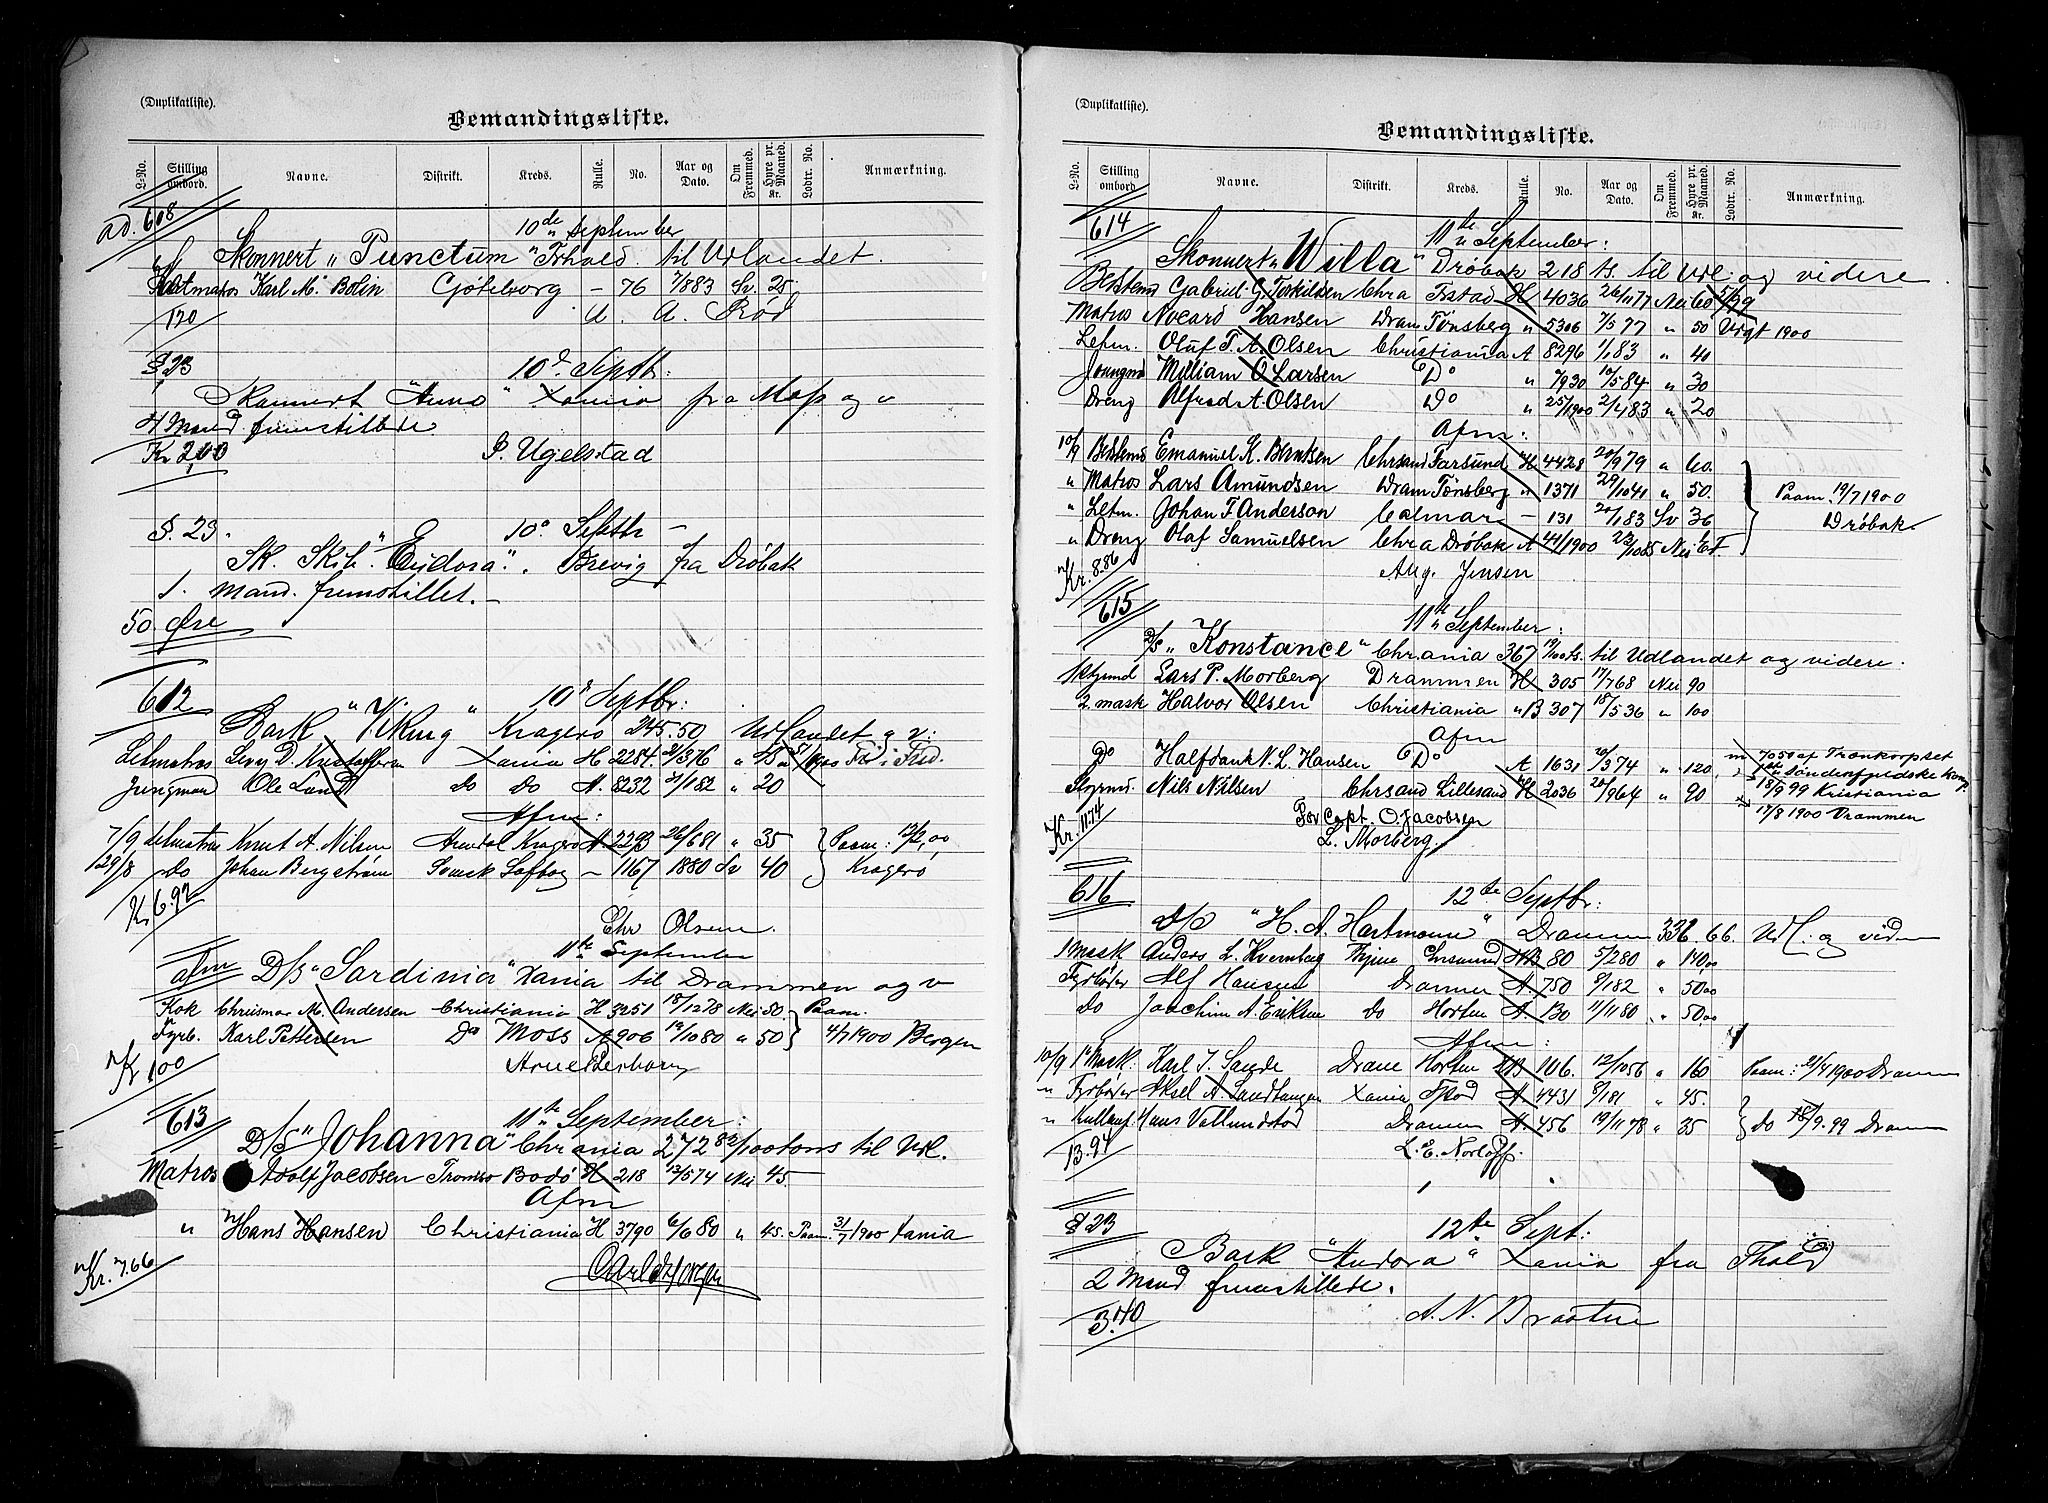 (Duplikatliste).
Bemandingsliste.
L-No. Stilling ombord. Navne. Distrikt. Kreds. Rulle. No. Aar og Dato. Om Fremmed. Hyre pr. Maaned. Kr. Lodtr. No. Anmærkning.
ad. 608
10de September
Skonnert "Punctum" Frhald. til Udlandet.
Karl M. Bolin Gøteborg – 76 7/883 Sv. 25
170
A. A. Rød
§ 23
10d Septbr.
Skonnert "Anno" Xania fra Moss og v
4 Mand fremstillede
Kr 2,00
P. Ugelstad
§. 23.
10d Septbr –
Sk. Skib. "Eydora". Brevig fra Drøbak
1. mand. fremstillet. –
50. Øre
612
10d Septbr:
Bark "Viking" Kragerø 245.50 Udlandet og v:
Letmatros Levy D. Kristoffersen Xania H 2284
Jungmand Ole Lund do do A. 8232 21/182 " 20
Afm:
7/9 Letmatros Knut A. Nilsen Arendal Kragerø A 2293 26/681 " 35 Paam: 12/2,00
29/8 do Johan Bergstrøm Svensk – 1167 1880 Sv 40 Kragerø
Kr 6.92
Chr Olsen
11te September
afm D/S "Sardinia" Xania til Drammen og v
Kok M. Andersen Christiania H 3251 18/1278 Nei 50. Paam.
Fyrb. Karl Pettersen Do Moss A 906 19/1080 " 50 4/7 1900 Bergen
Kr 100
613
11te September:
D/S "Johanna" Chrania 272 82/100 tons til Udl.
Matros Adolf Jacobsen Tromsø Bodø H 218 13/574 Nei 45.
Afm
" Hans Hansen Christiania H 3790 6/680 " 45. Paam. 31/7 1900 Xania
Kr. 7.66
(Duplikatliste).
Bemandingsliste.
L-No. Stilling ombord. Navne. Distrikt. Kreds. Rulle. No. Aar og Dato. Om Fremmed. Hyre pr. Maaned. Kr. Lodtr. No. Anmærkning.
614
11te September:
Skonnert "Willa" Drøbak 218 ts. til Udl. og videre
Bedstemd Gabriel G. Torkildsen Chra Frstad H 4036 26/1177 Nei 60 5/99
Matros Hansen Dram Tønsberg " 5306 7/577 " 50 Udgt 1900
Letm. Oluf T. A. Olsen Christiania A 8296 1/183 " 40
Joungmd William O. Larsen Do " 7930 10/584 " 30
Dreng Alfred A. Olsen Do " 25/1900 2/483 " 20
Afm:
10/9 Bedstemd Emanuel K. Berntsen Chrsand Farsund H 4428 20/979 " 60.
" Matros Lars Amundsen Dram Tønsberg " 1371 29/1041 " 50. Paam. 19/7 1900
" Letm. Johan F. Anderson Calmar – 131 20/183 Sv 36 Drøbak.
" Dreng Olaf Samuelsen Chra Drøbak A 44/1900 23/1085 Nei
Kr. 8.86
Aug. Jensen
615
11te September:
D/S "Konstance" Chrania 367 19/100 ts. til Udlandet og videre.
Lars P. Morberg Drammen H 305 17/768 Nei 90
2 mask Halvor Olsen Christiania "B 307 18/536 " 100
Afm
Do Halfdank N. L. Hansen Do A 1631 20/374 " 120. 7050 af Trænkorpset
Søndenfjeldske komp.
Styrmd. Nils Nilsen Chrsand Lillesand H 2036 20/964 " 90 13/9 99 Kristiania
17/8 1900 Drammen
Kr. 11.74
For Capt. O. Jacobsen
L. Morberg.
616
12te Septbr:
D/S "H. A. Hartmann" Drammen 336.66. Udl. og vid
1 Mask Anders L. Kvernberg 80 5/280 " 140,00
Fyrbøder Alf Hansen Drammen A. 750 8/182 " 50,00
do Joachim A. Eriksen do Horten A. 130 11/1180 " 50,00
Afm:
10/9 1ste Mask. Karl J. Sande Dram Horten 106. 12/1056 " 160 Paam: 21/4 1900 Dram
" Fyrbøder Aksel A. Sandtangen Xania A 4431 8/181 " 45.
" Hans Vallundstod Drammen A 456 19/1178 " 35 do 18/9. 99 Dram
13.94
L. E. Norloff.
§ 23
12te Sept:
Bark "Andora" Xania fra Fhald
2 Mand fremstillede.
3.40
A. N. Braaten